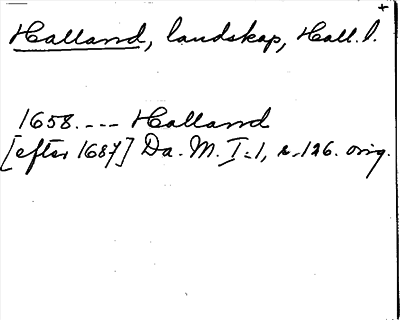 Halland, landskap, Hall. l.
1658. --- Halland
[efter 1687] Da. M. I:1, s. 126. orig.